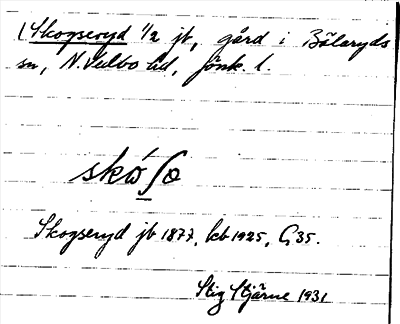 (Skogseryd 1/2 jb, gård i Bälaryds
sn, N. Vedbo hd, Jönk l.
skó̱ʃo
Skogseryd jb 1877, kb 1925, G 35.
Stig Stjärne 1931